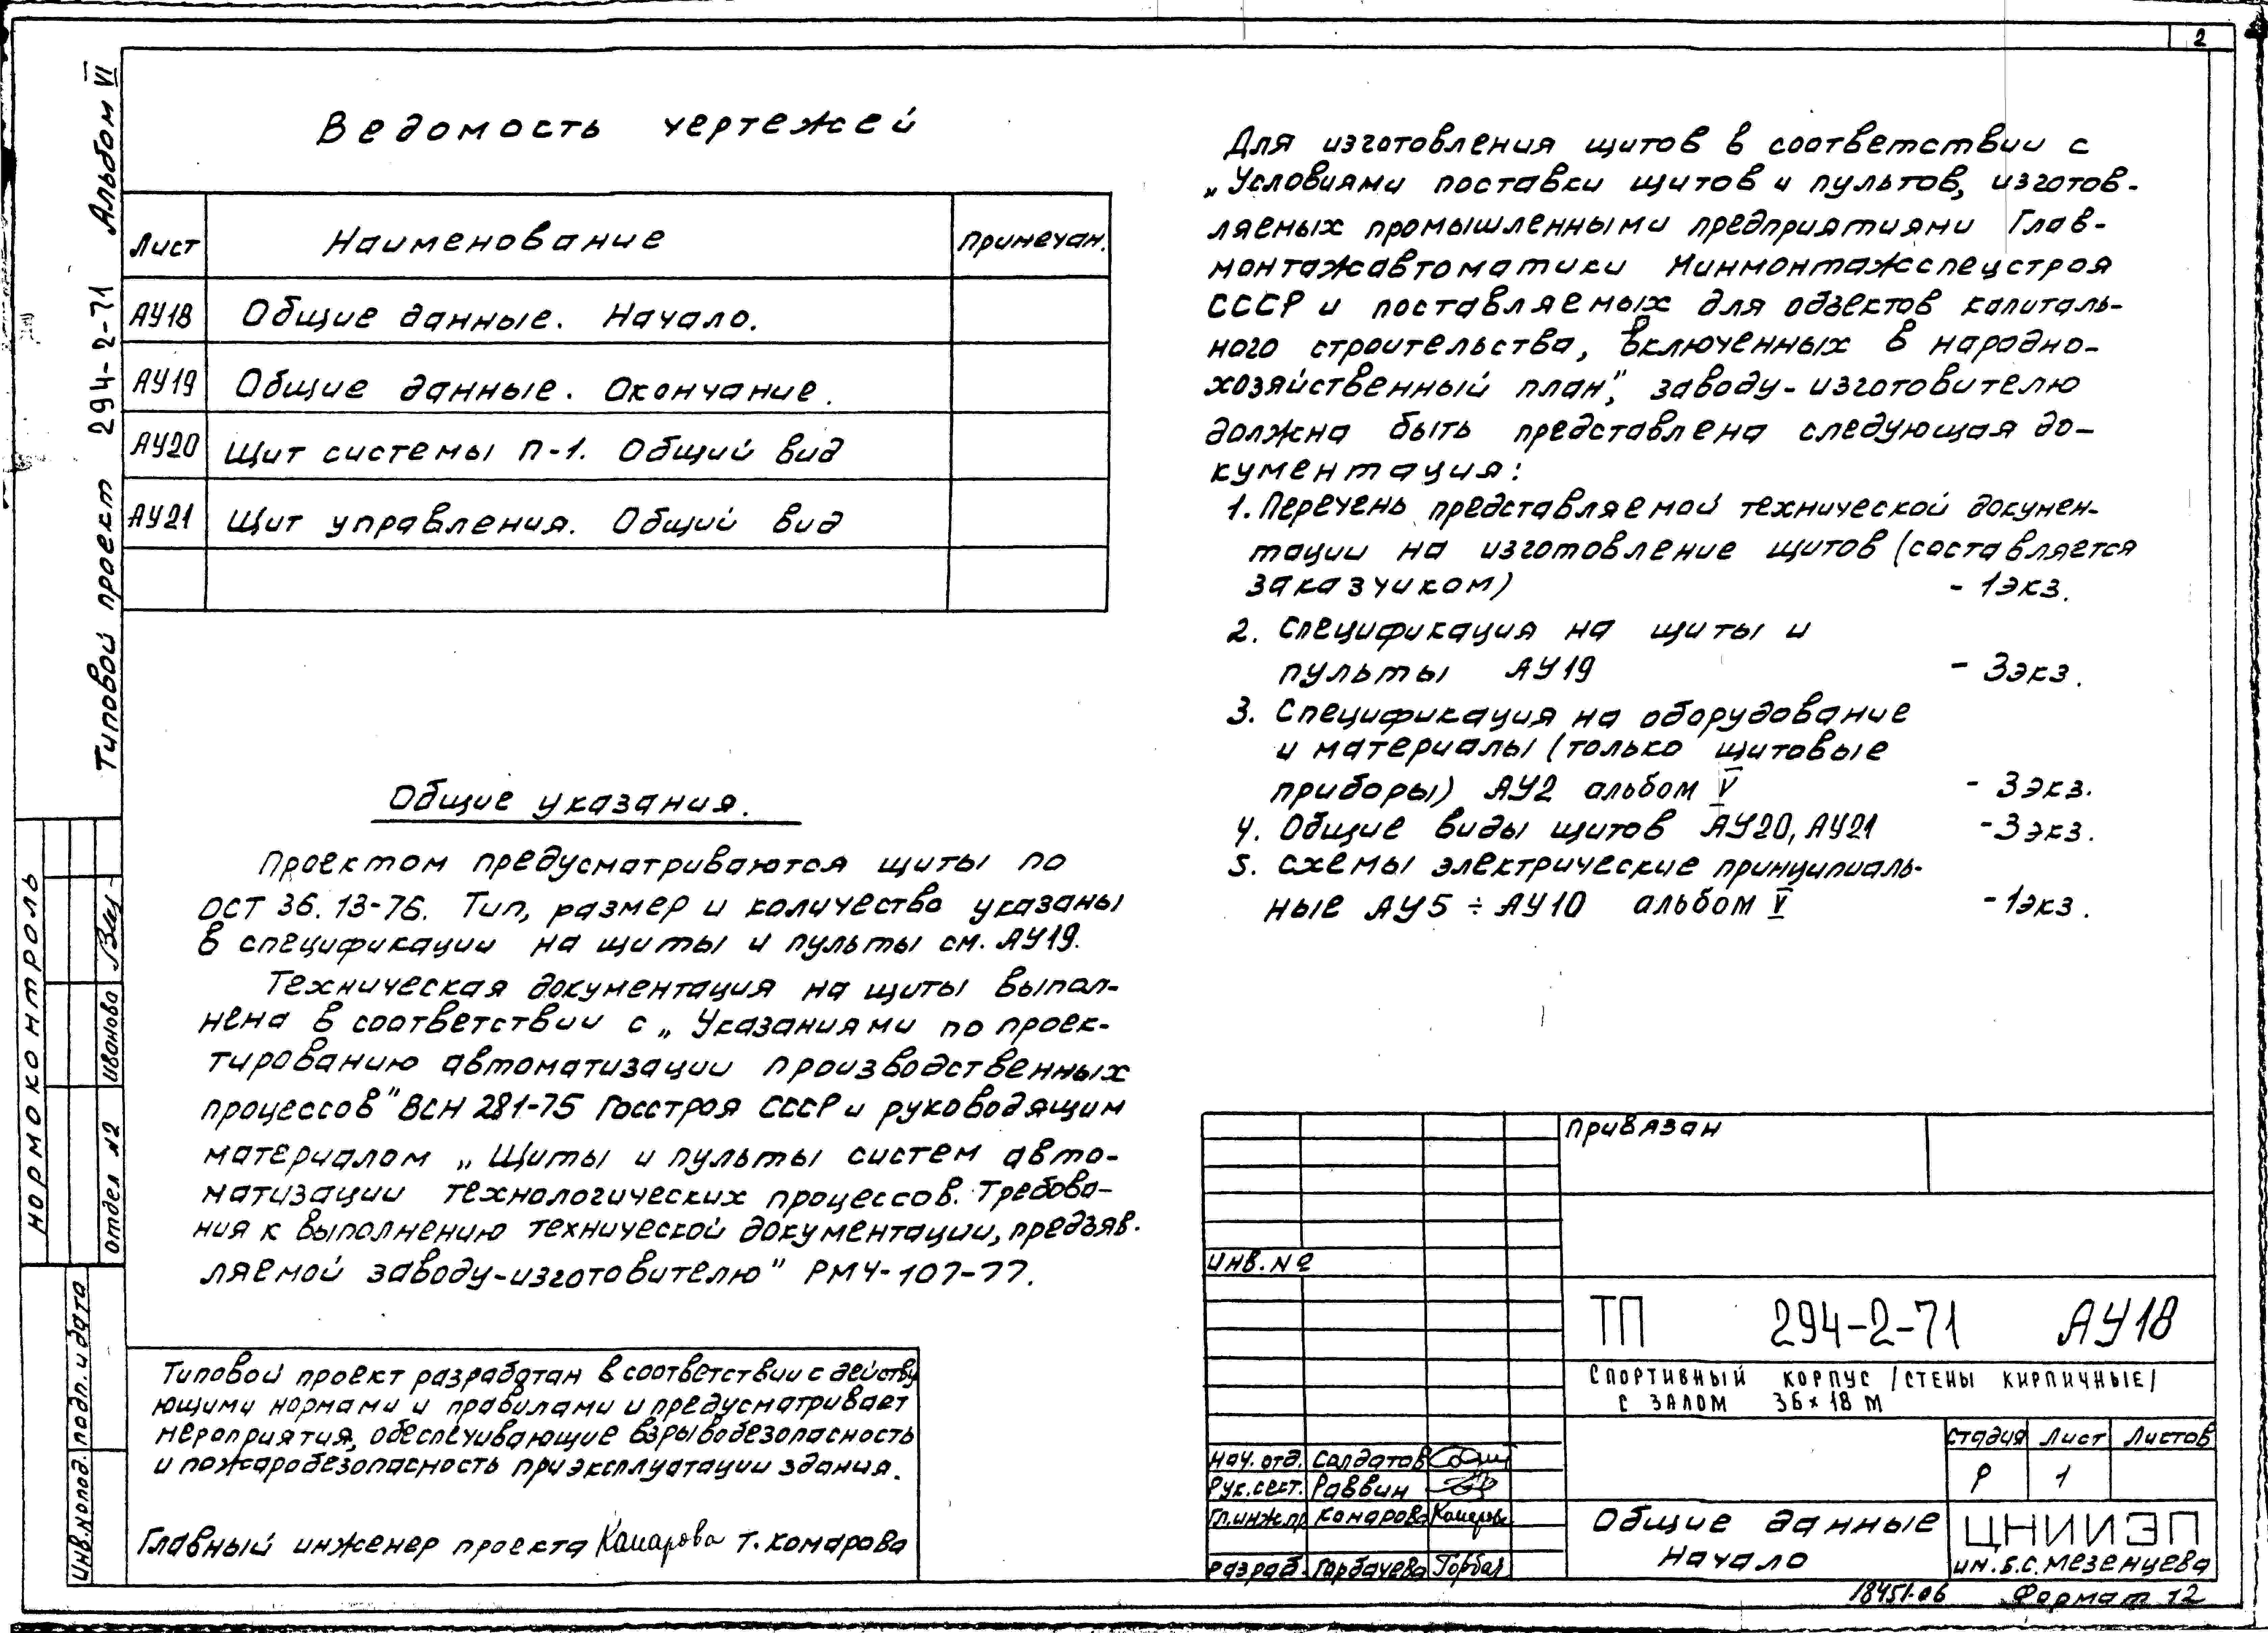 2
Типовой проект 294-2-71 Альбом VI
Ведомость чертежей
Лист Наименование Примечан.
АУ18 Общие данные. Начало.
АУ19 Общие данные. Окончание.
АУ20 Щит системы П-1. Общий вид
АУ21 Щит управления. Общий вид
Общие указания.
Проектом предусматриваются щиты по
ОСТ 36.13-76. Тип, размер и количество указаны
в спецификации на щиты и пульты см. АУ19.
Техническая документация на щиты выпол-
нена в соответствии с „Указаниями по проек-
тированию автоматизации производственных
процессов" ВСН 281-75 Госстроя СССР и руководящим
материалом „Щиты и пульты систем авто-
матизации технологических процессов. Требова-
ния к выполнению технической документации, предъяв-
ляемой заводу-изготовителю" РМ4-107-77.
Типовой проект разработан в соответствии с действу
ющими нормами и правилами и предусматривает
мероприятия, обеспечивающие взрывобезопасность
и пожаробезопасность при эксплуатации здания.
Главный инженер проекта Комарова Т. Комарова
Для изготовления щитов в соответствии с
„Условиями поставки щитов и пультов, изготов-
ляемых промышленными предприятиями Глав-
монтажавтоматики Минмонтажспецстроя
СССР и поставляемых для объектов капиталь-
ного строительства, включенных в народно-
хозяйственный план", заводу-изготовителю
должна быть представлена следующая до-
кументация:
1. Перечень представляемой технической докумен-
тации на изготовление щитов (составляется
заказчиком) - 1экз.
2. Спецификация на щиты и
пульты АУ19 - 3экз.
3. Спецификация на оборудование
и материалы (только щитовые
приборы) АУ2 альбом V - 3экз.
4. Общие виды щитов АУ20, АУ21 - 3экз.
5. Схемы электрические принципиаль-
ные АУ5 ÷ АУ10 альбом V - 1экз.
Нормоконтроль
отдел №2 Иванова
Инв.№подл. подп. и дата
Привязан
Инв. №
ТП 294-2-71 АУ18
Спортивный корпус /стены кирпичные/
с залом 36×18 м
Стадия Лист Листов
Р 1
Нач. отд. Солдатов
Рук. сект. Раввин
Гл.инж.пр Комарова Комарова
Разраб. Горбачева Горбач
Общие данные
Начало
ЦНИИЭП
им. Б.С. Мезенцева
18451-06 Формат 12